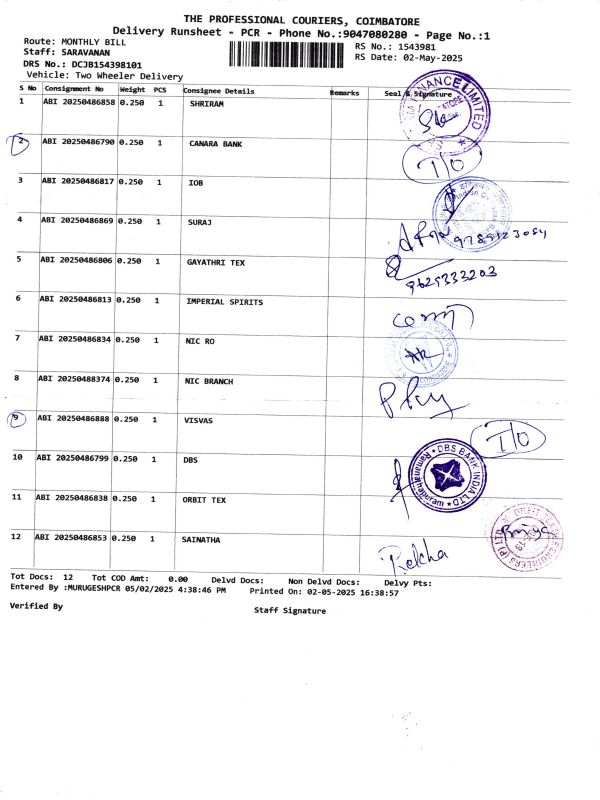 THE PROFESSIONAL COURIERS, COIMBATORE
Delivery Runsheet - PCR - Phone No.:9047080280 - Page No.:1
Route: MONTHLY BILL
Staff: SARAVANAN
DRS No.: DCJB154398101
Vehicle: Two Wheeler Delivery
RS No.: 1543981
RS Date: 02-May-2025
S No Consignment No Weight PCS Consignee Details Remarks Seal & Signature
1 ABI 20250486858 0.250 1 SHRIRAM
FINANCE LIMITED
2 ABI 20250486790 0.250 1 CANARA BANK
I/O
3 ABI 20250486817 0.250 1 IOB
4 ABI 20250486869 0.250 1 SURAJ
9789123084
5 ABI 20250486806 0.250 1 GAYATHRI TEX
9629333203
6 ABI 20250486813 0.250 1 IMPERIAL SPIRITS
7 ABI 20250486834 0.250 1 NIC RO
8 ABI 20250488374 0.250 1 NIC BRANCH
9 ABI 20250486888 0.250 1 VISVAS
I/O
10 ABI 20250486799 0.250 1 DBS
DBS BANK INDIA LTD
Ramanathapuram
11 ABI 20250486838 0.250 1 ORBIT TEX
12 ABI 20250486853 0.250 1 SAINATHA
Tot Docs: 12 Tot COD Amt: 0.00 Delvd Docs: Non Delvd Docs: Delvy Pts:
Entered By :MURUGESHPCR 05/02/2025 4:38:46 PM Printed On: 02-05-2025 16:38:57
Verified By Staff Signature